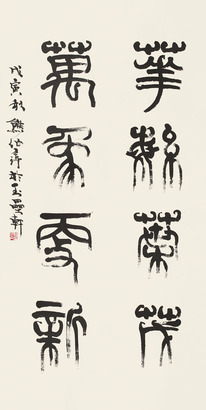 華緐葉茂
萬象更新
戊寅秋熊伯齊於玉壘軒